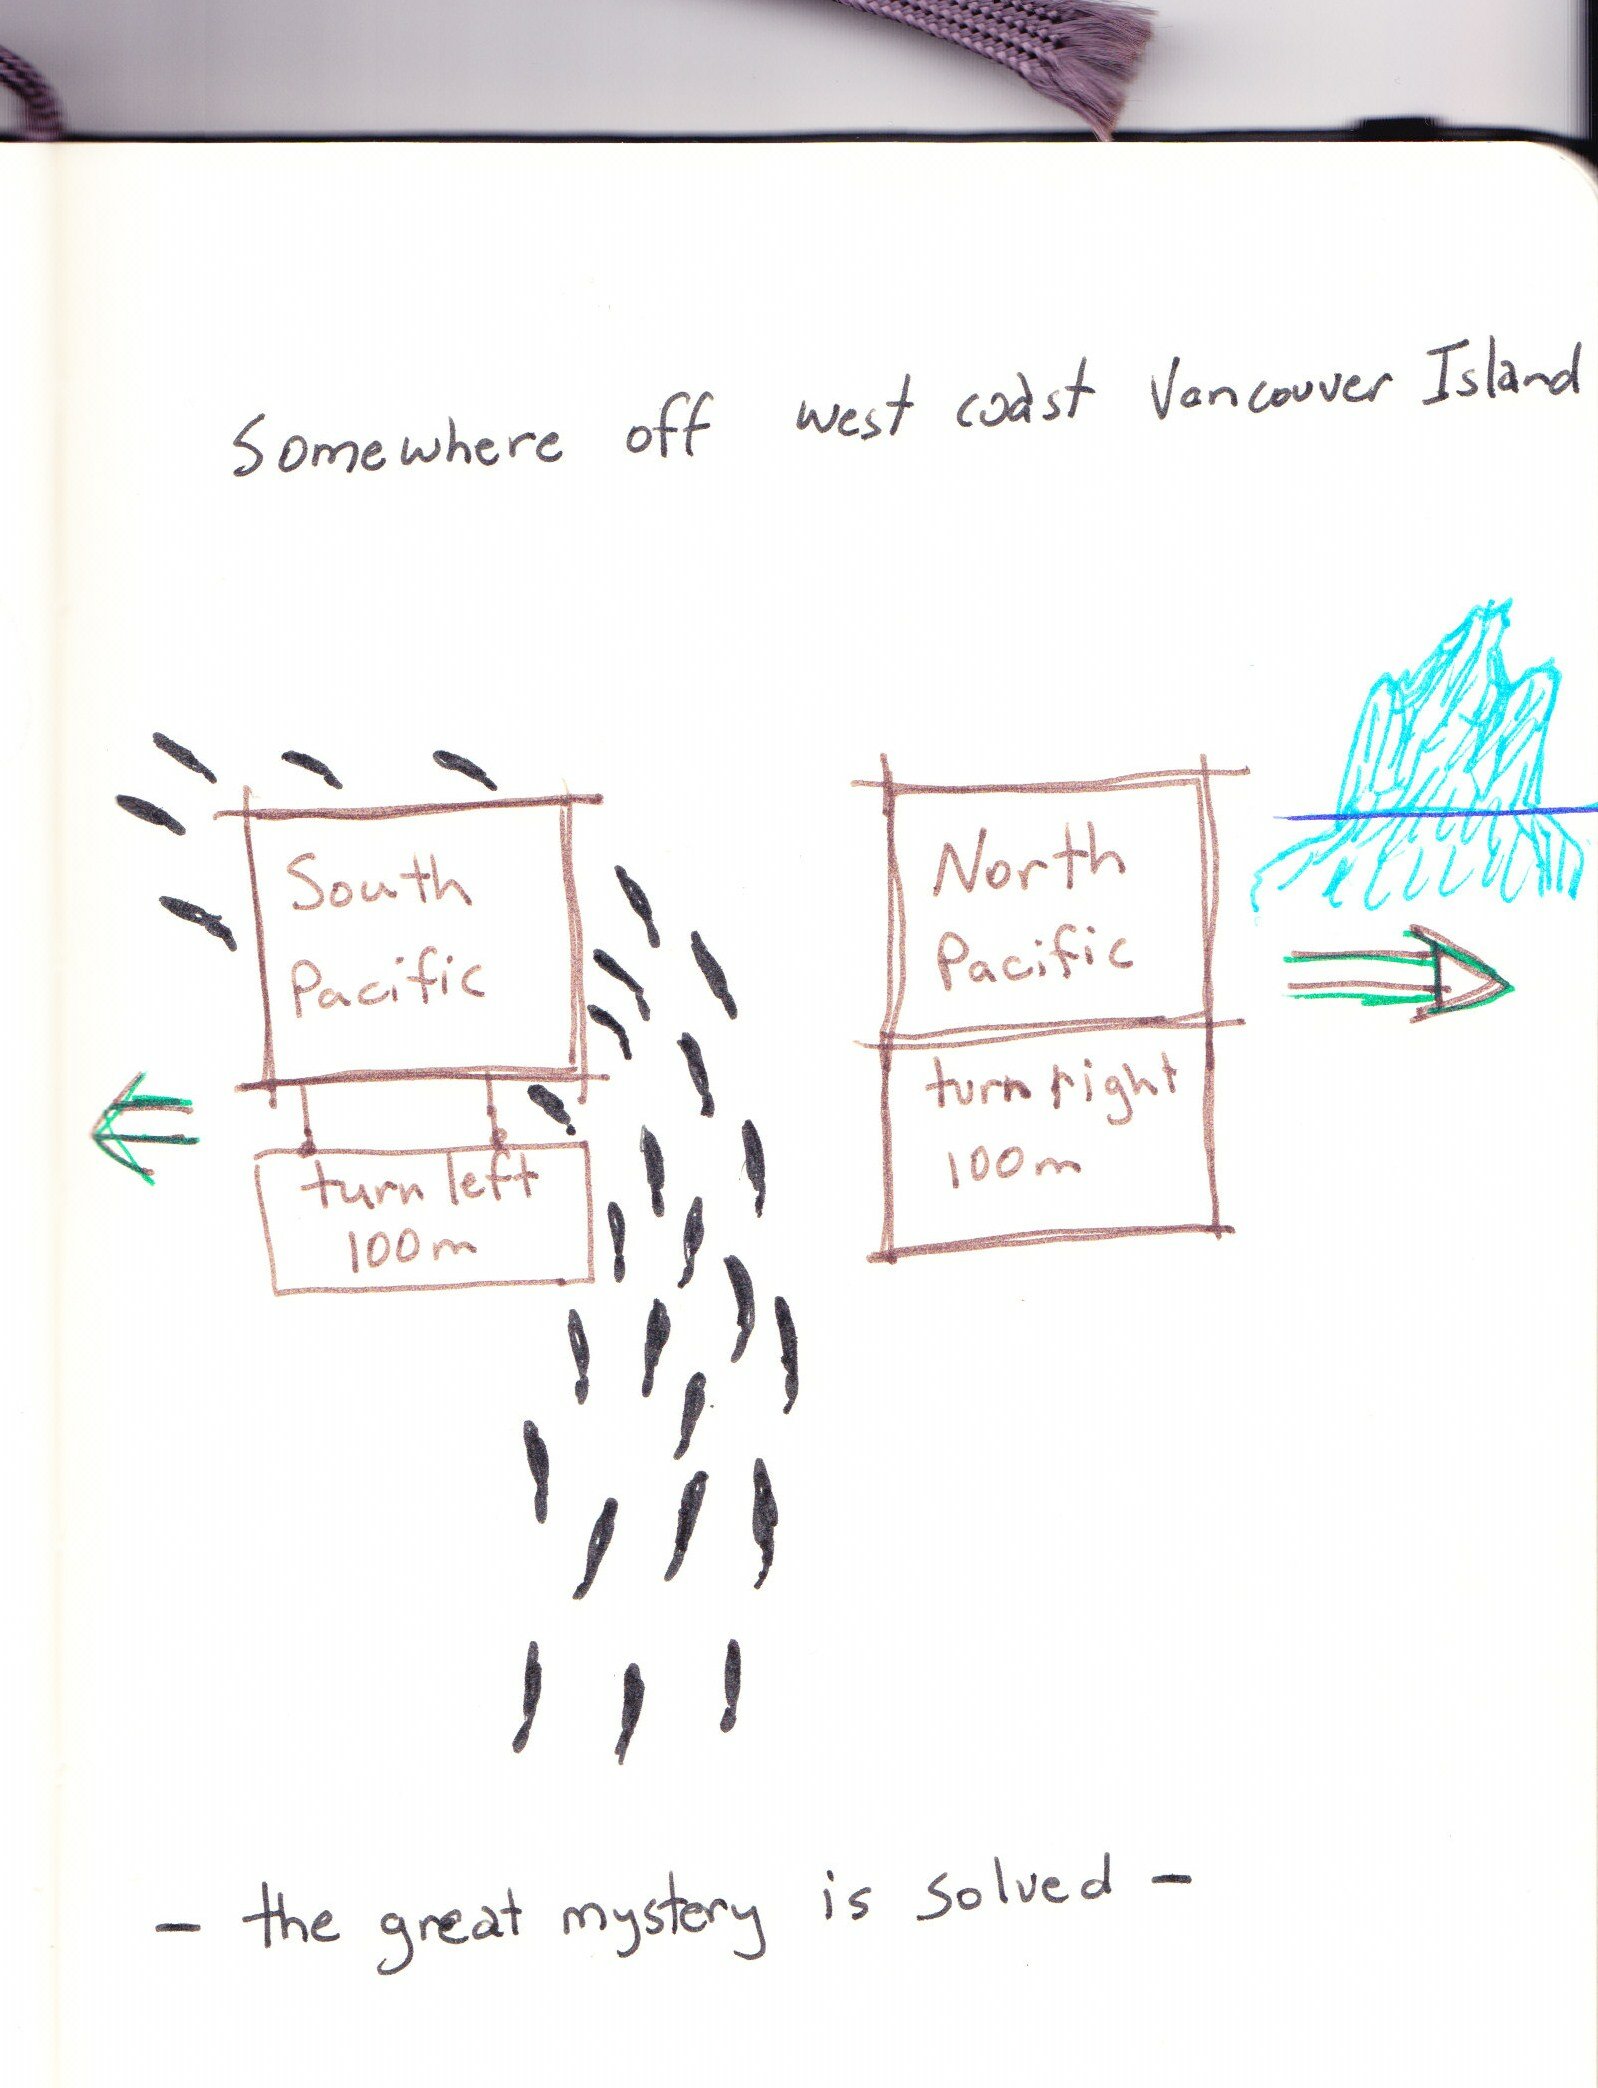 Somewhere off west coast Vancouver Island
South
Pacific
turn left
100m
North
Pacific
turn right
100m
- the great mystery is solved -